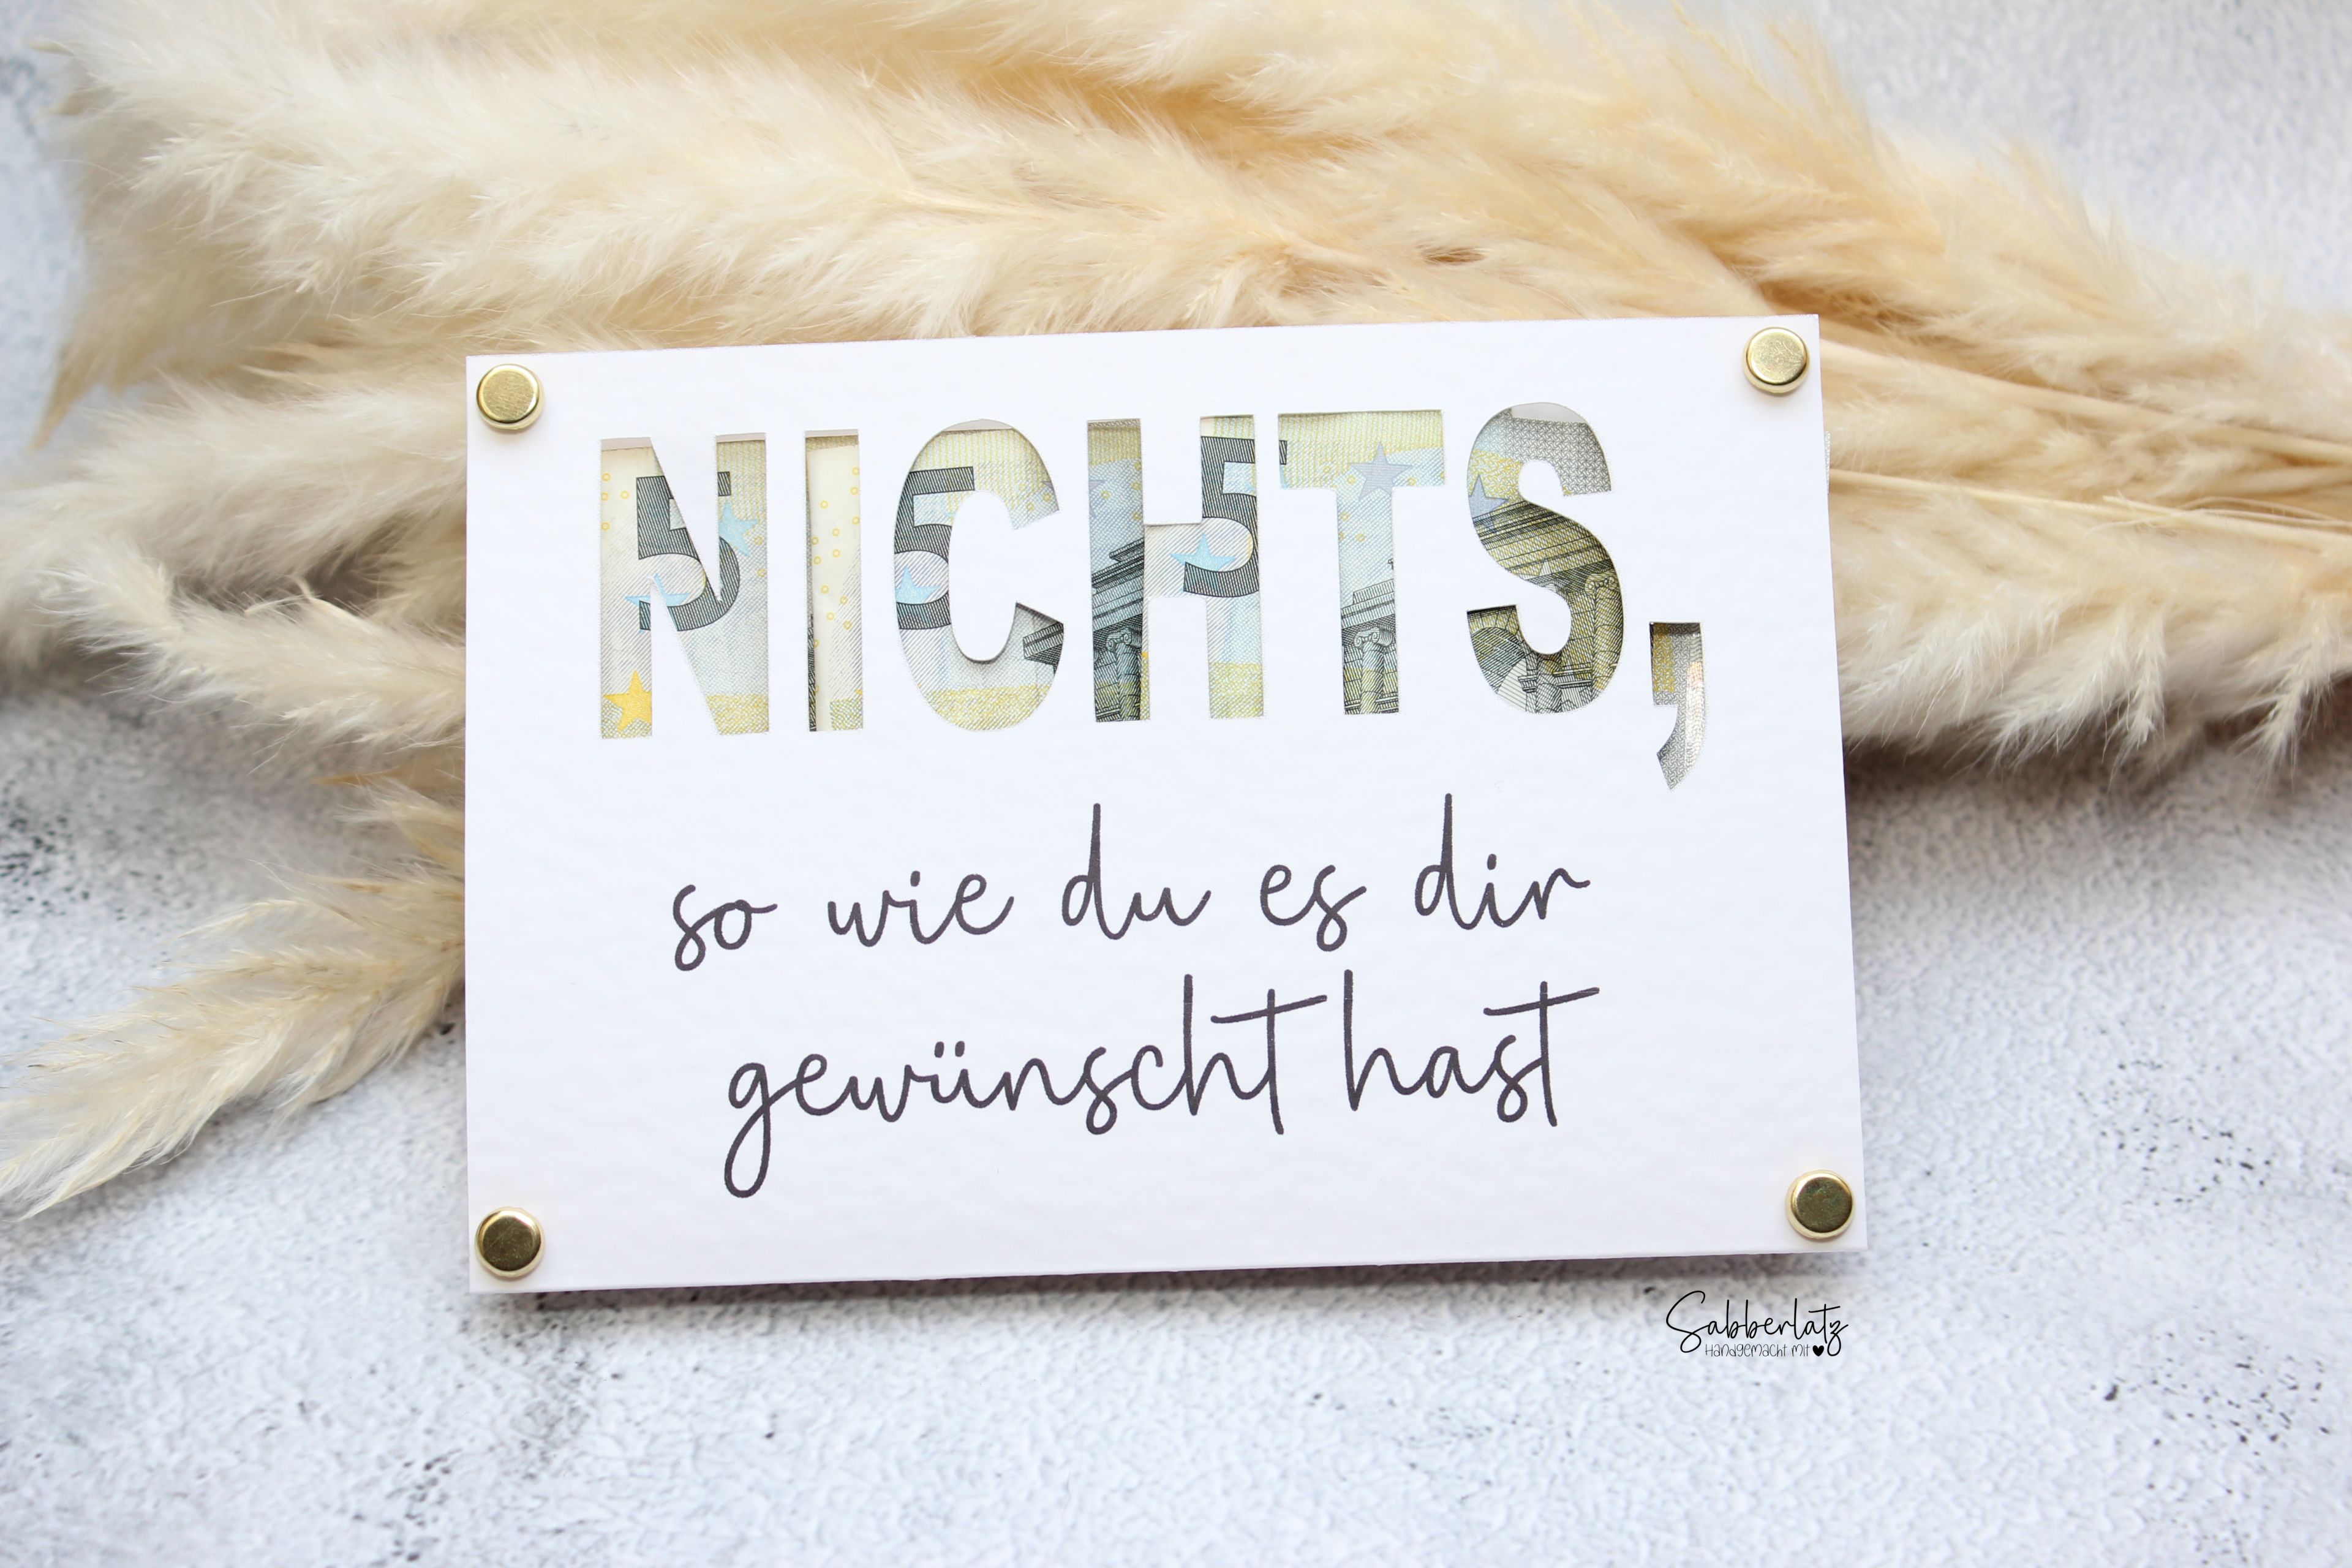 NICHTS,
5 5 5
so wie du es dir
gewünscht hast
Sabberlatz
Handgemacht mit ♥